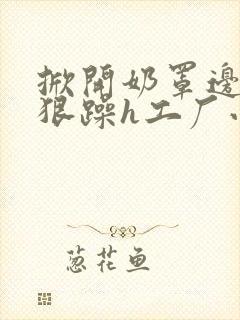 掀開奶罩邊
狠躁h工厂
葱花鱼